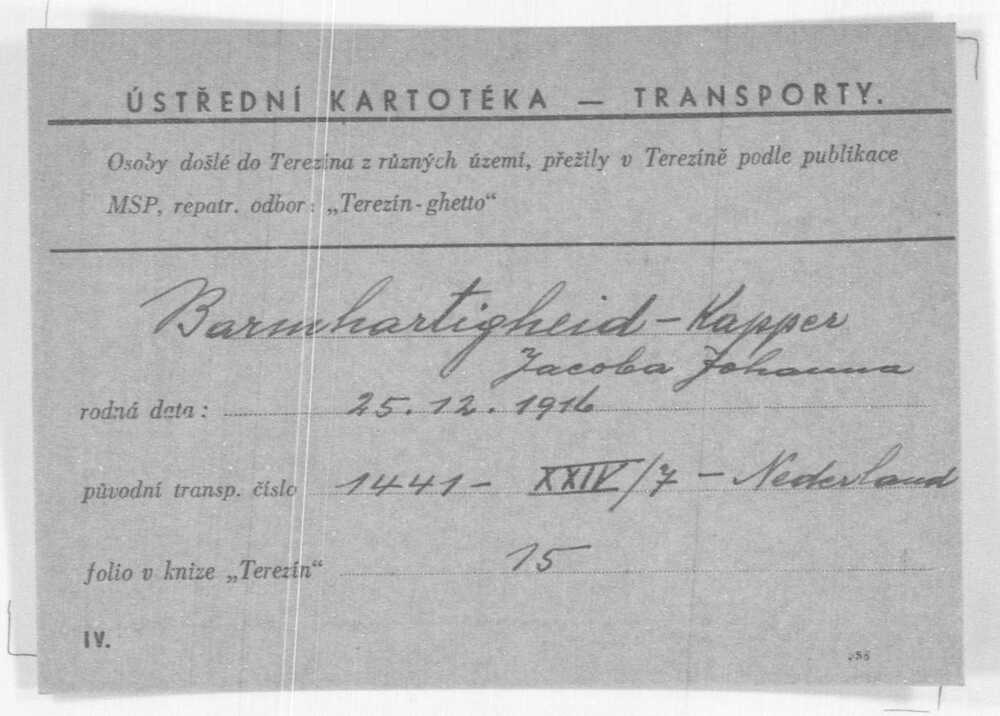 ÚSTŘEDNÍ KARTOTÉKA — TRANSPORTY.
Osoby došlé do Terezína z různých území, přežily v Terezíně podle publikace
MSP, repatr. odbor: „Terezín-ghetto“
Barmhartigheid-Kapper
Jacoba Johanna
rodná data: 25.12.1916
původní transp. číslo 1441- XXIV/7 - Nederland
folio v knize „Terezín“ 15
IV.